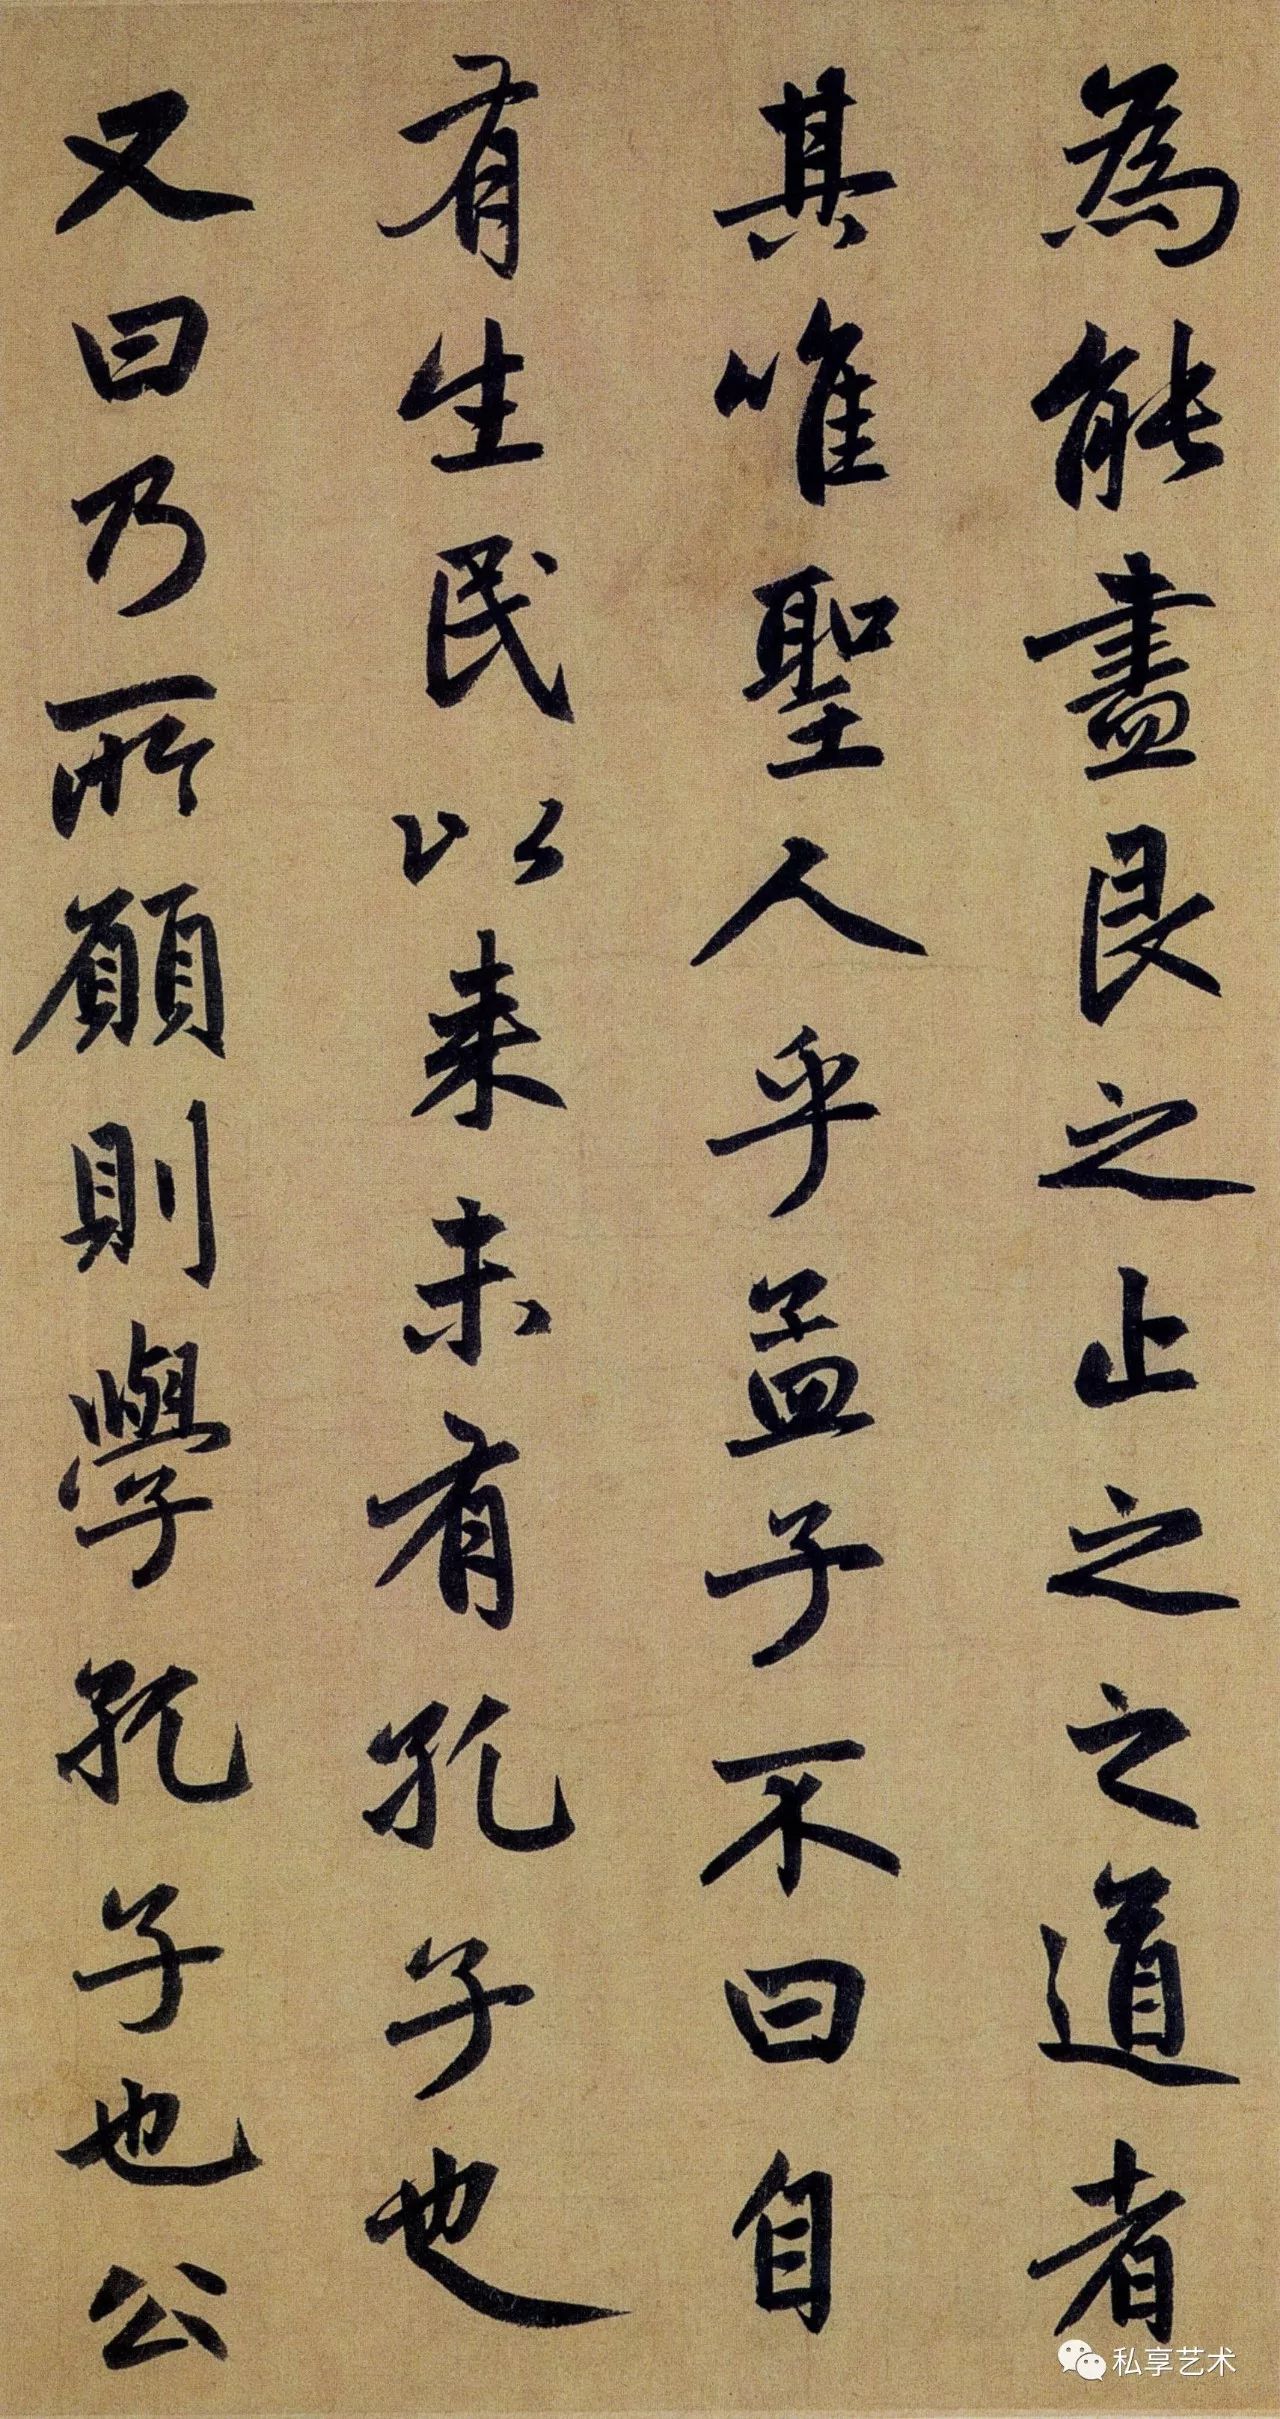 為能盡艮之止之之道者
其唯聖人乎孟子不曰自
有生民以来未有孔子也
又曰乃所願則學孔子也公
私享艺术